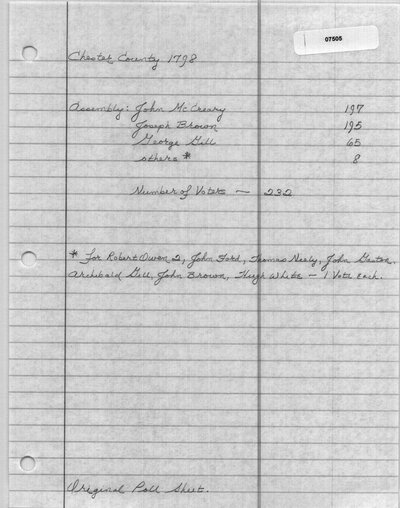 07505
Chester County 1798
Assembly: John McCreary 197
Joseph Brown 195
George Gill 65
others * 8
Number of Voters — 232
* For Robert Owen 2, John Ford, Thomas Neely, John Gaston,
Archibald Gill, John Brown, Hugh White — 1 Vote Each.
Original Poll Sheet.